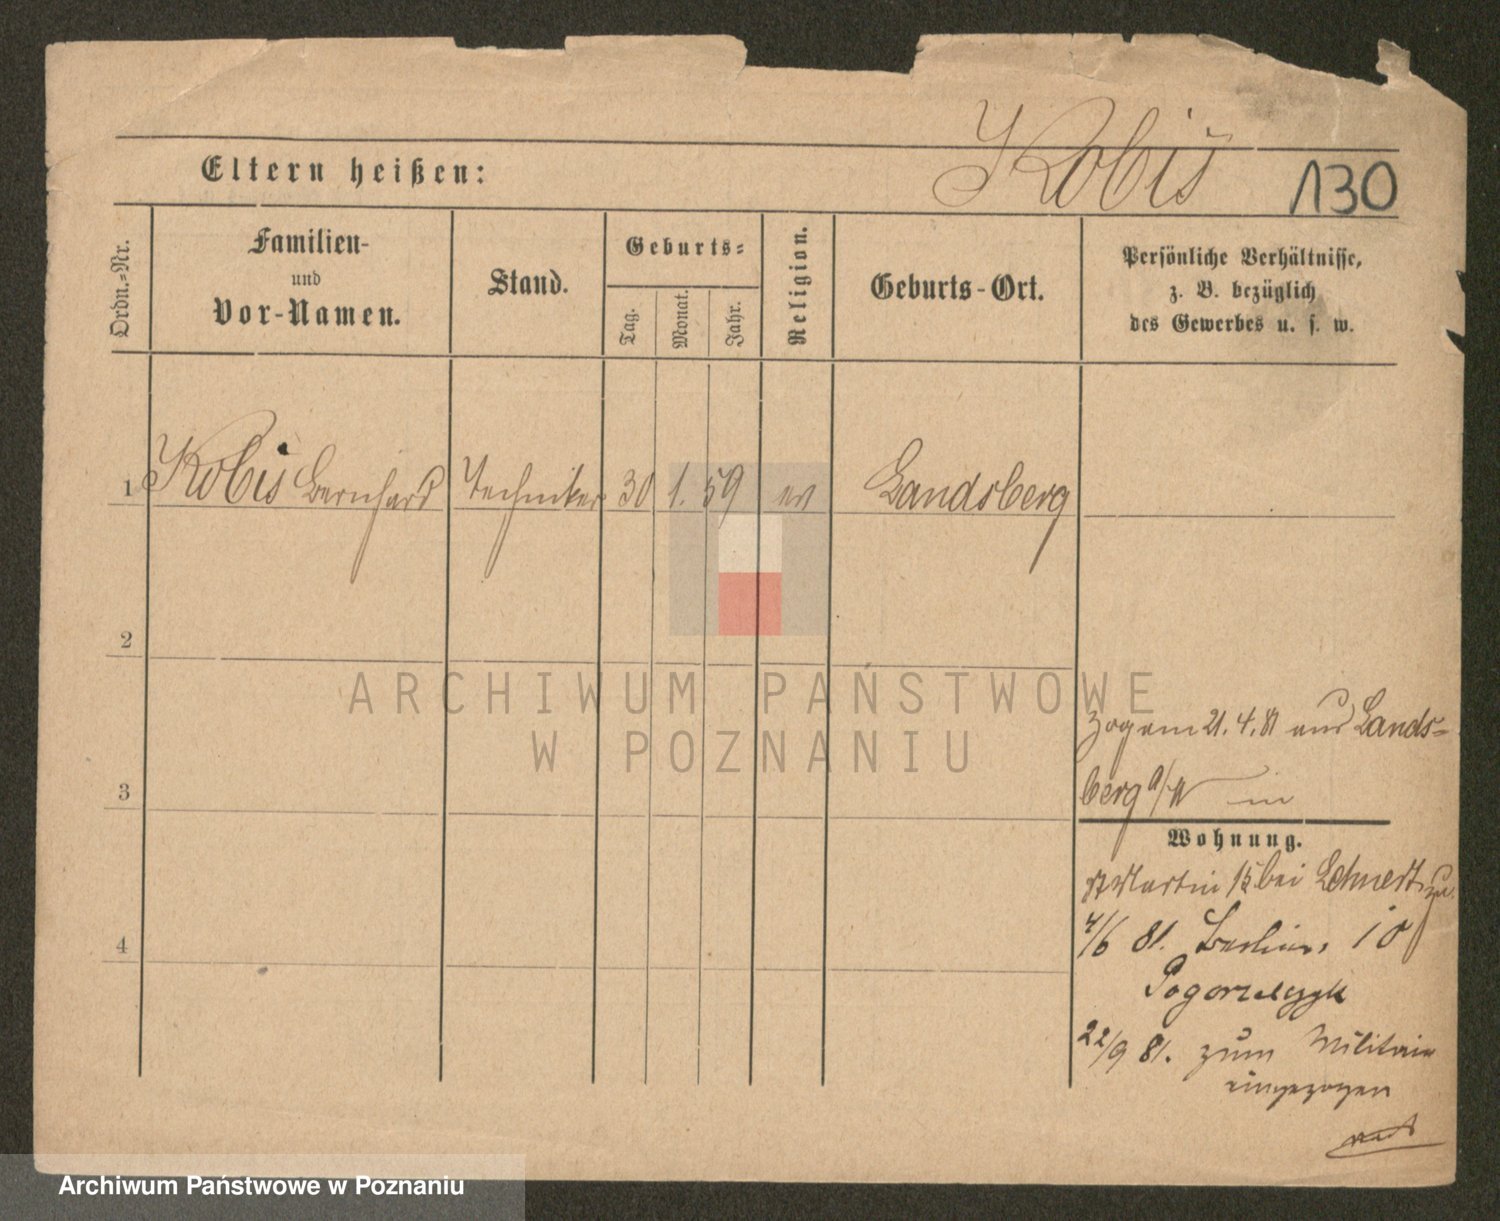 Kobis
130
Eltern heißen:
Ordn.-Nr.
Familien-
und
Vor-Namen.
Stand.
Geburts-
Tag.
Monat.
Jahr.
Religion.
Geburts-Ort.
Persönliche Verhältnisse,
z. B. bezüglich
des Gewerbes u. s. w.
1 Kobis Bernhard Techniker 30 1. 59 ev Landsberg
2
3
4
zog am 21.4.81 aus Lands-
berg a/W in
Wohnung.
St Martin 15 bei Lehnert
4/6 81. Berliner 10
Pogorzelczyk
22/9 81. zum Militair
eingezogen
ARCHIWUM PAŃSTWOWE
W POZNANIU
Archiwum Państwowe w Poznaniu